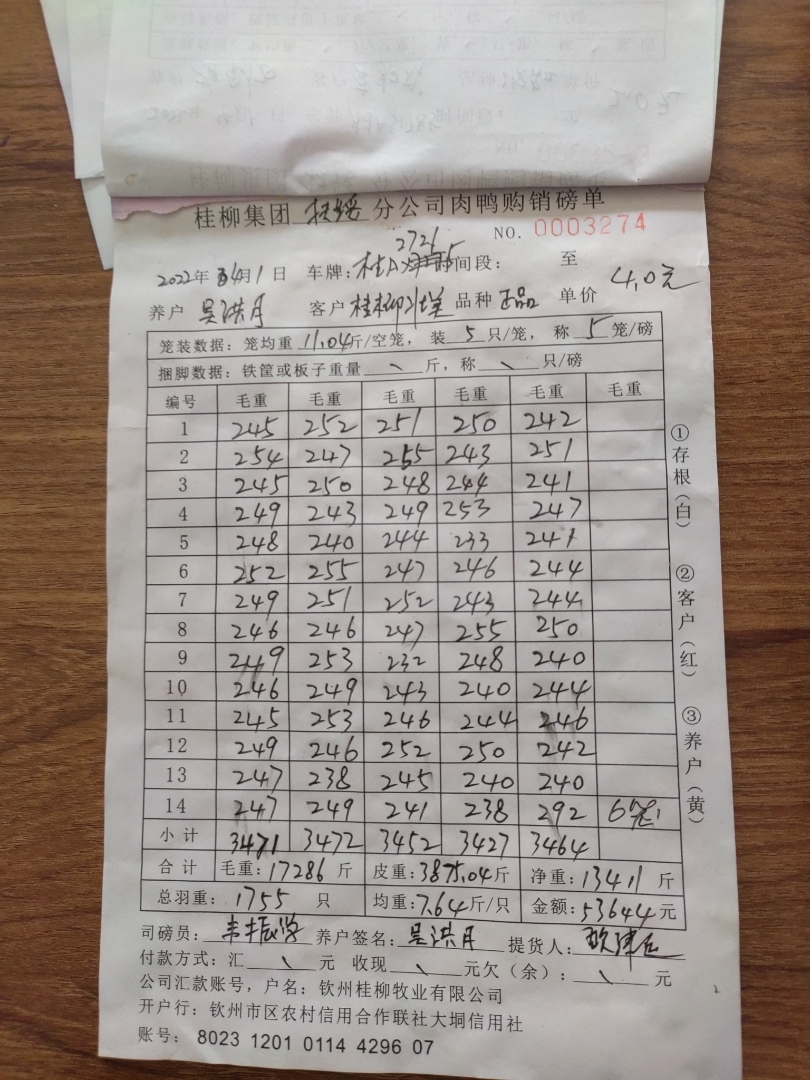 桂柳集团 扶绥 分公司肉鸭购销磅单
NO. 0003274
2022年 4月1日 车牌: 桂A 2726 时间段: 至
养户 吴洪月 客户 桂柳 品种 正品 单价 4.0元
笼装数据: 笼均重 11.04斤/空笼, 装 5 只/笼, 称 5 笼/磅
捆脚数据: 铁筐或板子重量 \ 斤, 称 \ 只/磅
编号 毛重 毛重 毛重 毛重 毛重 毛重
1 245 252 251 250 242
2 254 247 255 243 251
3 245 250 248 244 241
4 249 243 249 253 247
5 248 240 244 233 241
6 252 255 247 246 244
7 249 251 252 243 244
8 246 246 247 255 250
9 249 253 232 248 240
10 246 249 243 240 244
11 245 253 246 244 246
12 249 246 252 250 242
13 247 238 245 240 240
14 247 249 241 238 292 6笼
小计 3471 3472 3452 3427 3464
合计 毛重: 17286 斤 皮重: 3875.04斤 净重: 13411 斤
总羽重: 1755 只 均重: 7.64斤/只 金额: 53644元
司磅员: 养户签名: 吴洪月 提货人:
付款方式: 汇 \ 元 收现 \ 元欠(余): \ 元
公司汇款账号, 户名: 钦州桂柳牧业有限公司
开户行: 钦州市区农村信用合作联社大垌信用社
账号: 8023 1201 0114 4296 07
①存根(白) ②客户(红) ③养户(黄)